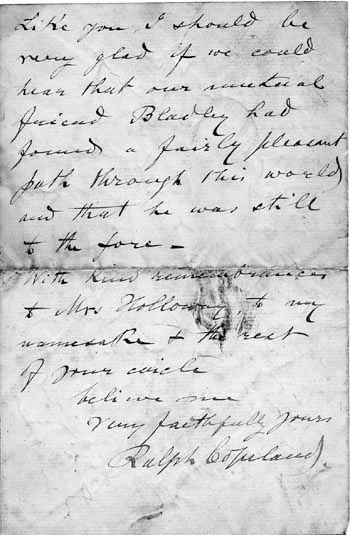 Like you I should be
very glad if we could
hear that our mutual
friend Bladley had
found a fairly pleasant
path through this world
and that he was still
to the fore –
With kind remembrances
to Mrs Holloway, to my
namesake & the rest
of your circle
believe me
very faithfully yours
Ralph Copeland.